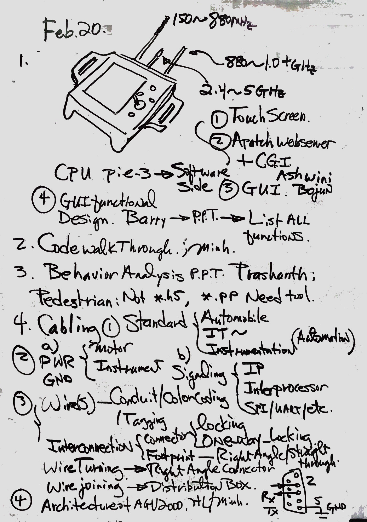 Feb. 20.
150~880MHz
1.
880~1.0+GHz
2.4~5GHz
① TouchScreen.
② Apatch Webserver
+ CGI
CPU Pie-3 → Software Side
Ashwini
③ GUI. Bojun
④ GUI functional
Design. Barry → P.P.T. → List ALL
functions.
2. Code walk Through. j Minh.
3. Behavior Analysis P.P.T. Prashanth;
Pedestrian: Not *.h5, *.PP Need tool.
4. Cabling ① Standard { Automobile
IT ~
Instrumentation (Automation)
② a) PWR { motor
GND Instrument
b) Signaling { IP
Interprocessor
SPI/UART/etc.
③ Wire(s) — Conduit/Color Coding
/Tagging
Interconnection { Connector { Locking
ONE-way-Locking
Footprint — Right Angle/Straight
through.
Wire Turning → Right Angle Connector
Wire joining → Distribution Box.
④ Architecture of AGV2000, HL/Minh.
2
Rx
Tx
5
GND